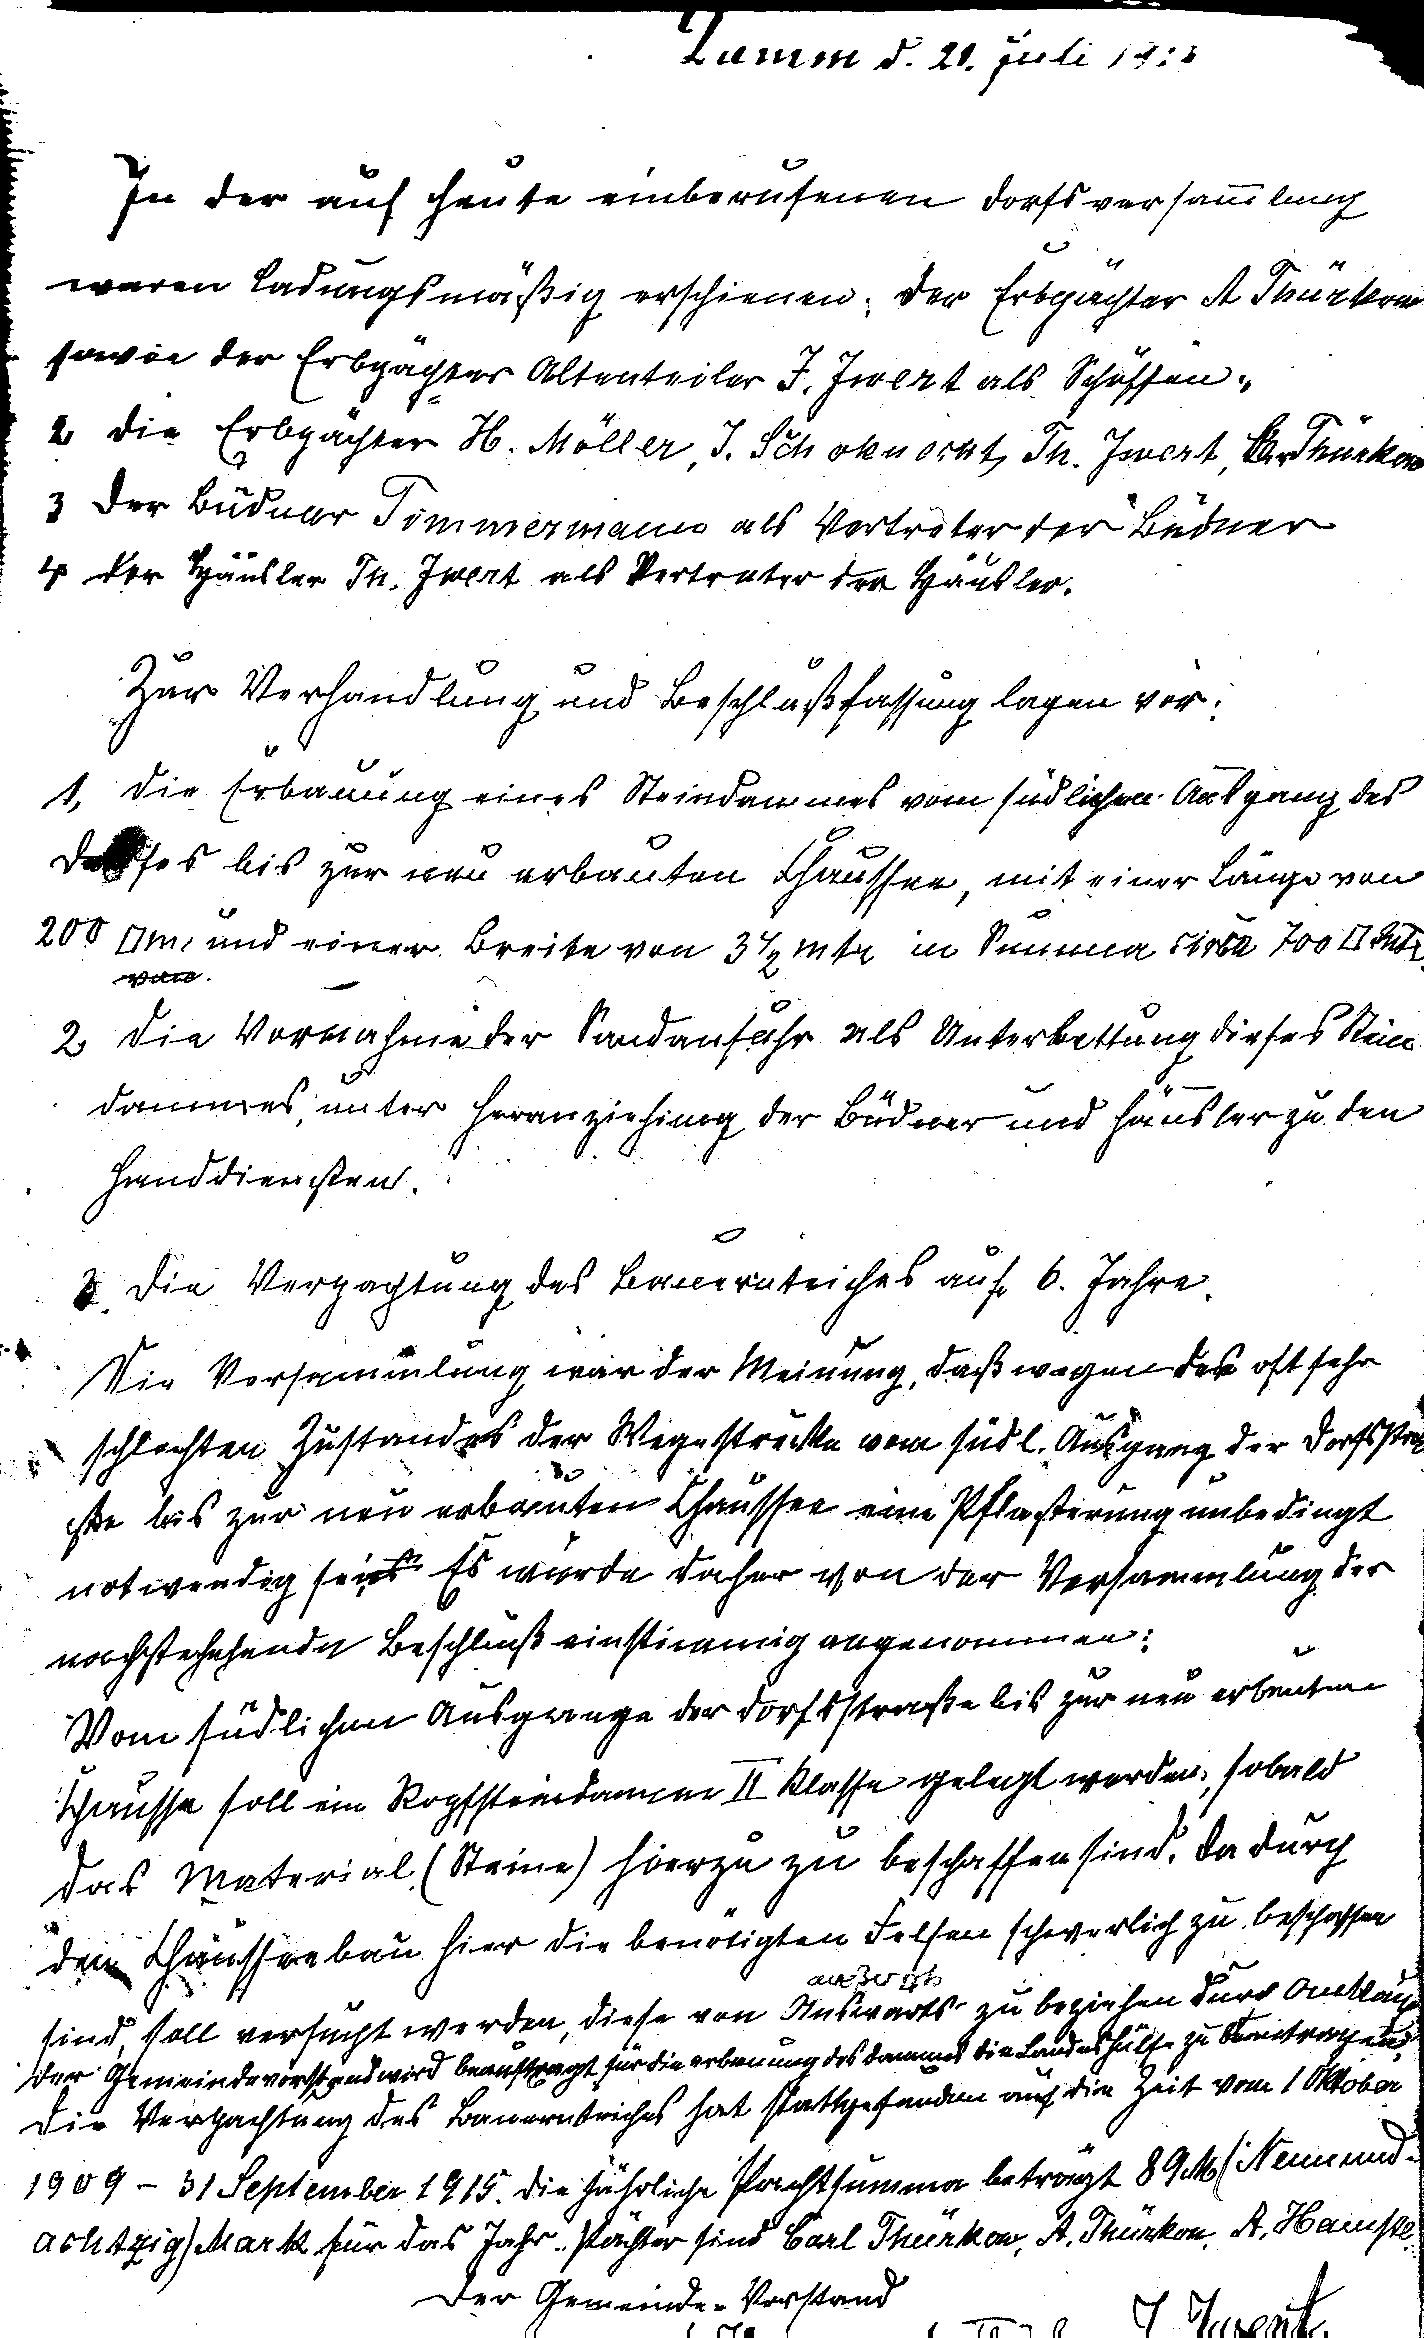 Lamm d. 21. Juli
In der auf heute einberufenen Dorfsversam̅lung
waren ladungsmäßig erschienen: der Erbpächter A Thürkow
sowie der Erbpächter Altenteiler F. Jwert als Schöffen.
2 die Erbpächter H. Möller, J. Schoknecht, Th. Jwert, C. Thürkow
3 der Büdner Timmermann als Vertreter der Büdner
4 der Häusler Th. Jwert als Vertreter der Häusler.
Zur Verhandlung und Beschlußfassung lagen vor:
1, die Erbauung eines Steindammes vom südlichen Ausgang des
Dorfes bis zur neu erbauten Chaussee, mit einer Länge von
200 □m, und einer Breite von 3½ mtr in Summa circa 700 □ Mtr.
2, die Vornahme der Sandanfuhr als Unterbettung dieses Stein
dammes, unter Heranziehung der Büdner und Häusler zu den
Handdiensten.
3. die Verpachtung des Bauernteiches auf 6. Jahre.
Die Versammlung war der Meinung, daß wegen des oft sehr
schlechten Zustandes der Wegestrecke vom südl. Ausgang der Dorfsstra
ße bis zur neu erbauten Chaussee eine Pflasterung unbedingt
notwendig sei. Es wurde daher von der Versammlung der
nachstehende Beschluß einstimmig angenommen:
Vom südlichen Ausgange der Dorfsstraße bis zur neu erbauten
Chausse soll ein Kopfsteindamm II Klasse gelegt werden, sobald
das Material (Steine) hierzu zu beschaffen sind. Da durch
den Chausseebau hier die benötigten Felsen schwerlich zu beschaffen
sind, soll versucht werden, diese von Auswärts zu beziehen durch Ankauf
der Gemeindevorstand wird beauftragt für die erbauung des Dammes die Landeshülfe zu beantragen
Die Verpachtung des Bauernteiches hat stattgefunden auf die Zeit vom 1 Oktober
1909 - 31 September 1915. die jährliche Pachtsumma beträgt 89 M (Neunund-
achtzig) Mark für das Jahr. Pächter sind Carl Thürkow, A. Thürkow, A.
Der Gemeinde-Vorstand
J. Jwert.